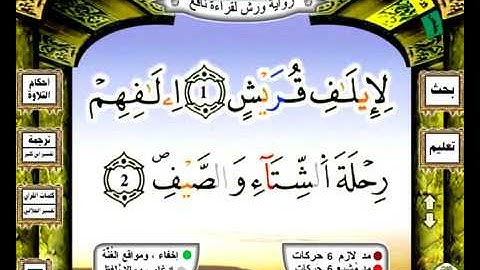 رواية ورش لقراءة نافع
لِإِيلَٰفِ قُرَيْشٍ ١ إِۦلَٰفِهِمْ
رِحْلَةَ اَلشِّتَآءِ وَالصَّيْفِ ص 2
أحكام التلاوة
ترجمة
تفسير ابن كثير
كلمات القرآن
تفسير الجلالين
بحث
تعليم
إخفاء ، ومواقع الغُنَّة
مد لازم 6 حركات
مد مشبع 6 حركات